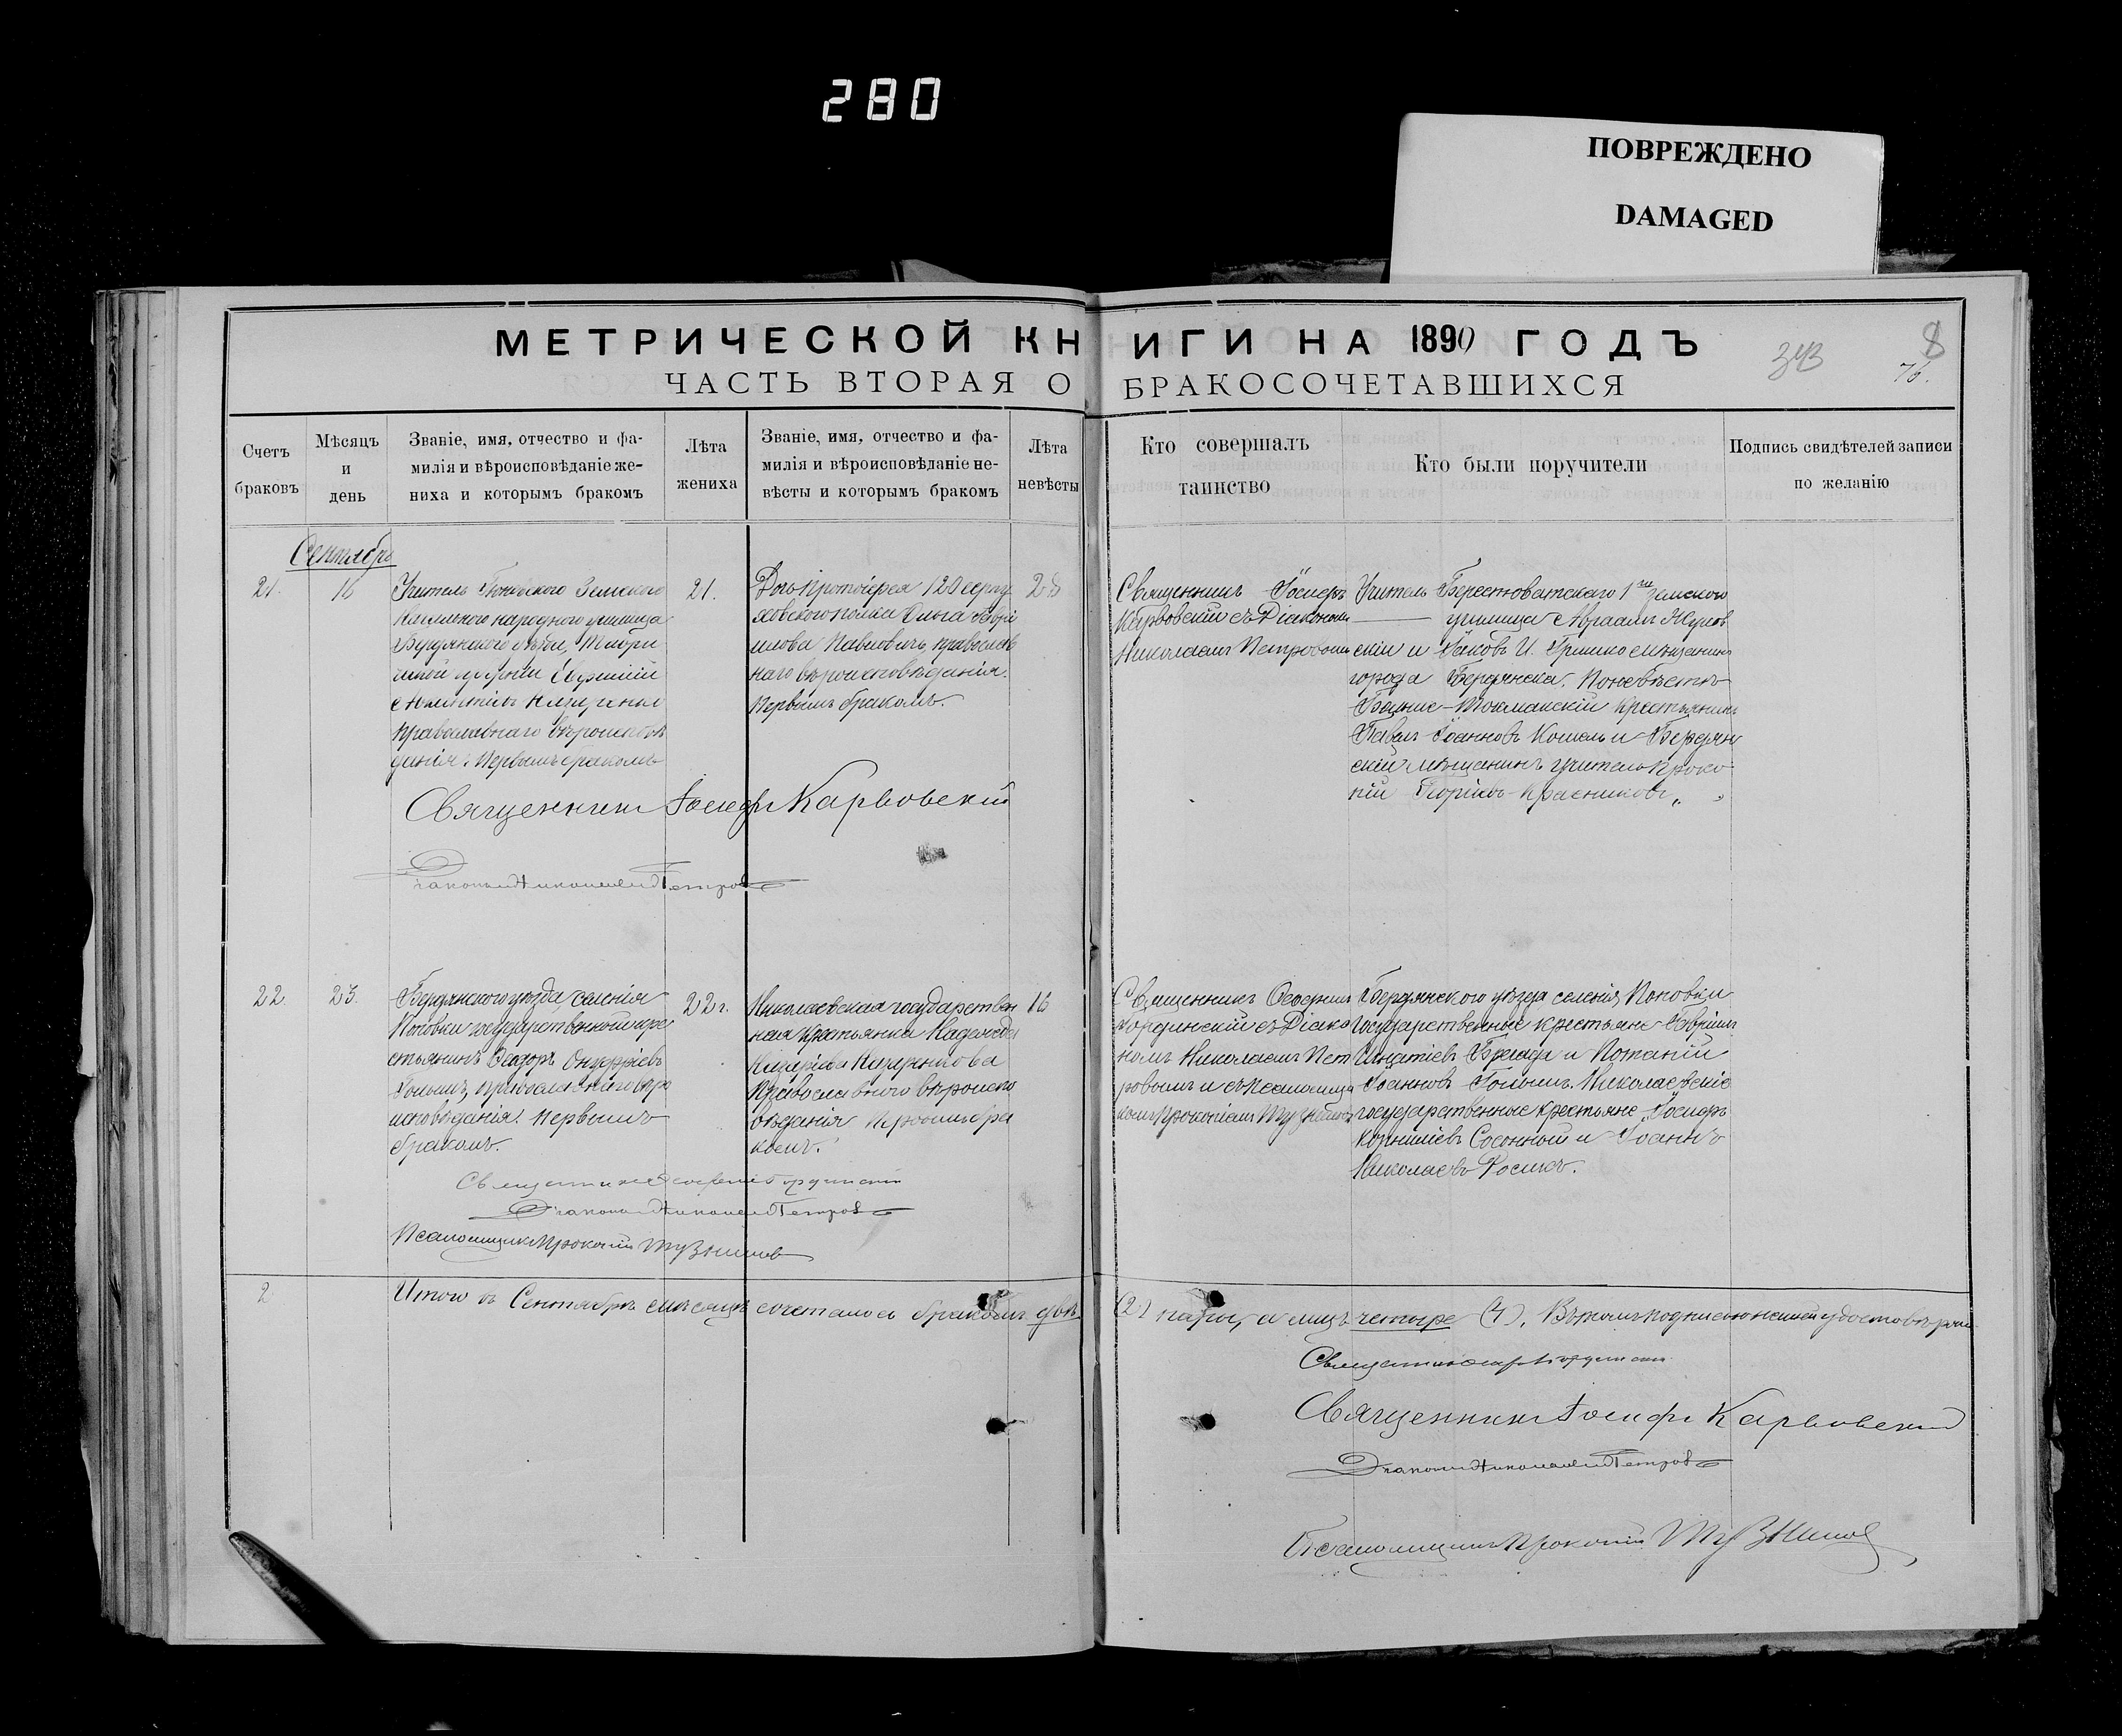 280
ПОВРЕЖДЕНО
DAMAGED
МЕТРИЧЕСКОЙ КНИГИ НА 1890 ГОДЪ
343
8
76.
ЧАСТЬ ВТОРАЯ О БРАКОСОЧЕТАВШИХСЯ
Счетъ
браковъ
Мѣсяцъ
и
день
Званіе, имя, отчество и фа-
милія и вѣроисповѣданіе же-
ниха и которымъ бракомъ
Лѣта
жениха
Званіе, имя, отчество и фа-
милія и вѣроисповѣданіе не-
вѣсты и которымъ бракомъ
Лѣта
невѣсты
Кто совершалъ
таинство
Кто были поручители
Подпись свидѣтелей записи
по желанію
Сентябрь
21.
16
Учитель Земскаго
народнаго училища
Бердянского уѣзда, Таври
ческой губерніи Евфимій
православнаго вѣроисповѣ
данія. Первымъ бракомъ
21.
Дочь Протоіерея 120 серпу
ховского полка Ольга Гаврі
илова Павловичъ, православ
наго вѣроисповѣданія.
Первымъ бракомъ.
28
Священникъ Іосифъ
Карвовскій съ Діакономъ
Николаемъ Петровымъ
Учитель Берестоватскаго 1го земского
училища Авраамъ
скій и Яковъ И. Гришко мѣщанинъ
города Бердянска. По невѣстѣ
Больше-Токмакскій крестьянинъ
Павелъ Іоанновъ Кошель и Бердян
скій мѣщанинъ учитель Проко
пій Георгіевъ Красниковъ
Священникъ Іосифъ Карвовскій
Діаконъ Николай Петровъ
22.
23.
Бердянского уѣзда селенія
Поповки государственный кре
стьянинъ Ѳеодоръ Онуфріевъ
православнаго вѣро
исповѣданія. Первымъ
бракомъ.
22 г.
Николаевская государствен
ная крестьянка Надежда
православного вѣроиспо
вѣданія Первымъ бра
комъ.
16
Священникъ
Гординскій съ Діако
номъ Николаемъ Пет
ровымъ и съ Псаломщи
комъ Прокопіемъ
Бердянского уѣзда селенія Поповки
государственные крестьяне Гавріилъ
Игнатіевъ и Потапій
Іоанновъ Николаевскіе
государственные крестьяне Іосифъ
Корниліевъ Сосонный и Іоаннъ
Николаевъ
Священникъ Гординскій
Діаконъ Николай Петровъ
Псаломщикъ Прокопій
2
Итого въ Сентябрѣ мѣсяцѣ сочеталось бракомъ двѣ (2) пары, а лицъ четыре (4). Въ томъ подписью нашей удостовѣряемъ
Священникъ Гординскій
Священникъ Іосифъ Карвовскій
Діаконъ Николай Петровъ
Псаломщикъ Прокопій